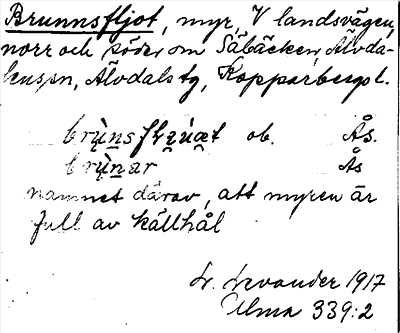 Brunnsfljot, myr, V landsvägen,
norr och söder om Säbäcken, Älvda-
lens sn, Älvdals tg, Kopparbergs l.
ob. Ås.
brùnar Ås
namnet därav, att myren är
full av källhål
L. Levander 1917
Ulma 339:2